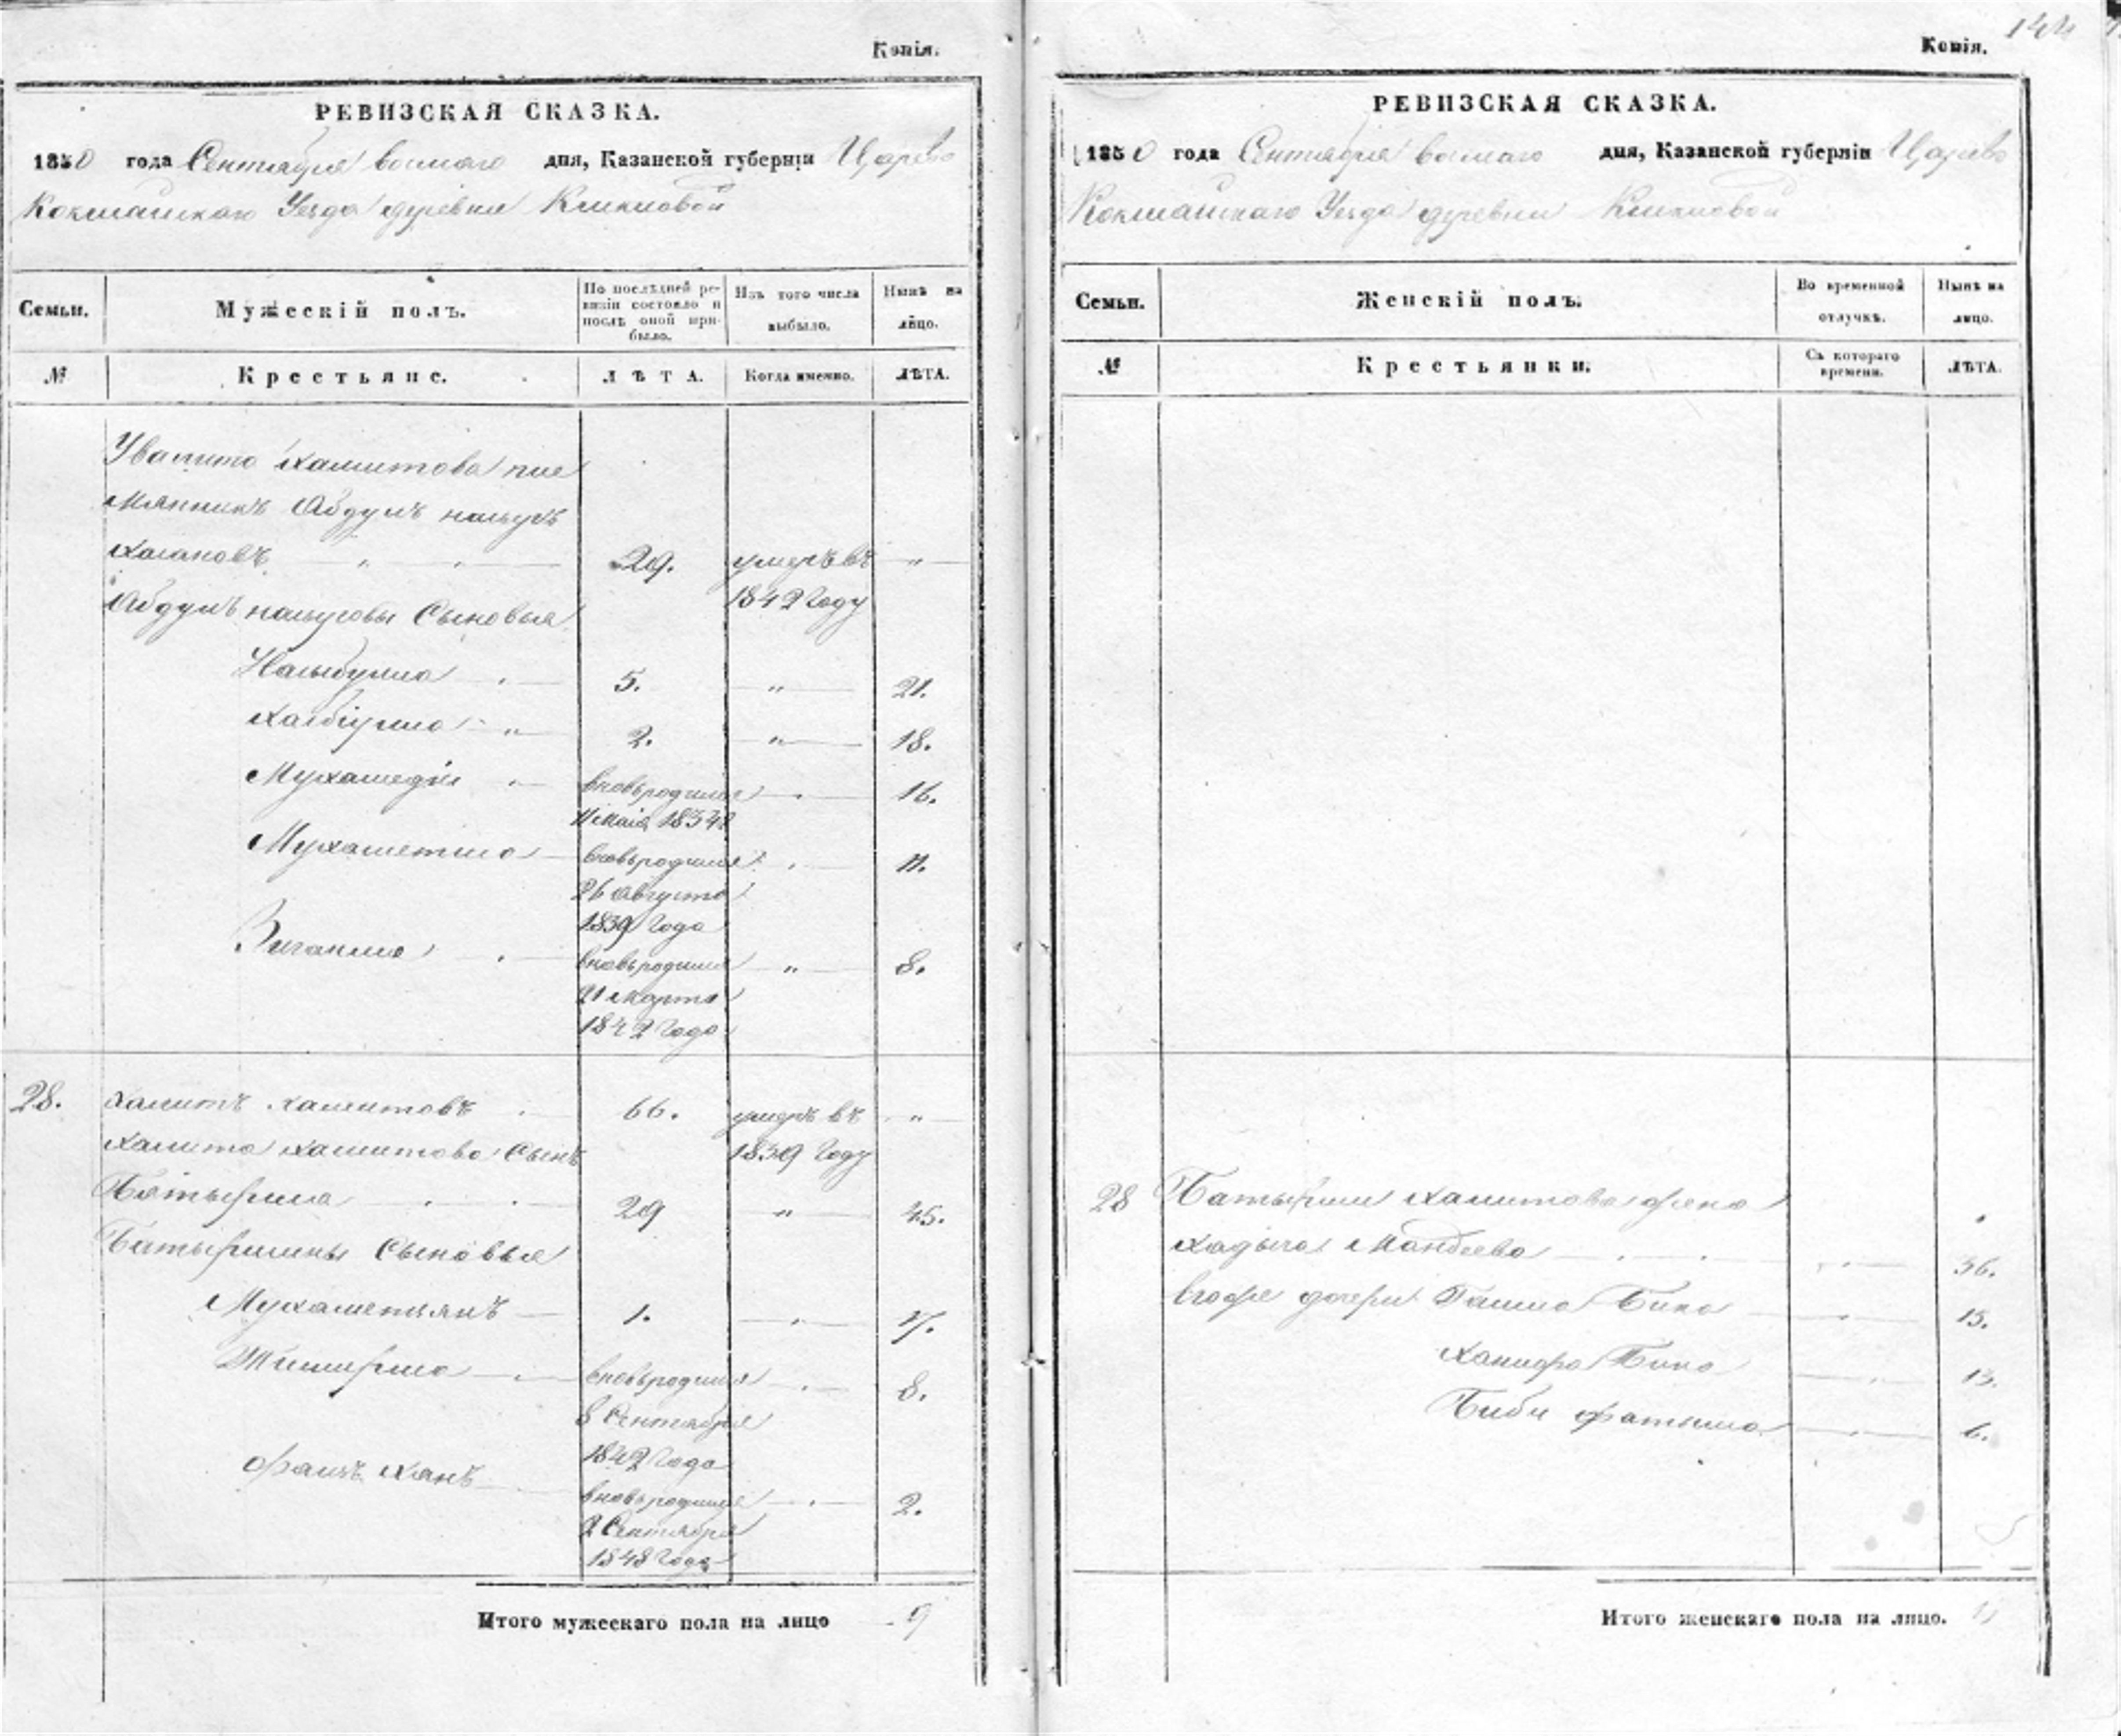 Копія.
РЕВИЗСКАЯ СКАЗКА.
1850 года Сентября восмаго дня, Казанской губерніи Царево
Кокшайскаго Уезда деревни
Семьи.
Мужескій полъ.
По послѣдней ре-
визіи состояло и
послѣ оной при-
было.
Изъ того числа
выбыло.
Нынѣ на
лицо.
№
Крестьяне.
ЛѢТА.
Когда именно.
ЛѢТА.
Хамитова пле
мянникъ Абдулъ
Хасановъ 29. умеръ въ "
1842 Году
Абдулъ Сыновья
5. " 21.
Хабіулла " 2. " 18.
Мухамедій вновьродился 16.
11 Маія 1834
Мухаметша вновьродился 11.
26 Августа
1839 Года
Зиганша вновьродился " 8.
21 Марта
1842 Года
28. Халитъ Хамитовъ 66. умеръ въ "
1839 Году
Халита Хамитова Сынъ
Батырша 29 " 45.
Батыршины Сыновья
Мухаметьянъ 1. 17.
Тимирша вновьродился 8.
8 Сентября
1842 Года
Фаизъ Ханъ вновьродился 2.
2 Сентября
1848 Года
Итого мужескаго пола на лицо 9
144
Копія.
РЕВИЗСКАЯ СКАЗКА.
1850 года Сентября восмаго дня, Казанской губерніи Царево
Кокшайскаго Уезда деревни
Семьи.
Женскій полъ.
Во временной
отлучкѣ.
Нынѣ на
лицо.
№
Крестьянки.
Съ котораго
времени.
ЛѢТА.
28 Батырши Халитова жена
Хадыча 36.
дочери Бика 15.
Ханифа Бика 13.
Биби Фатыма 6.
Итого женскаго пола на лицо.